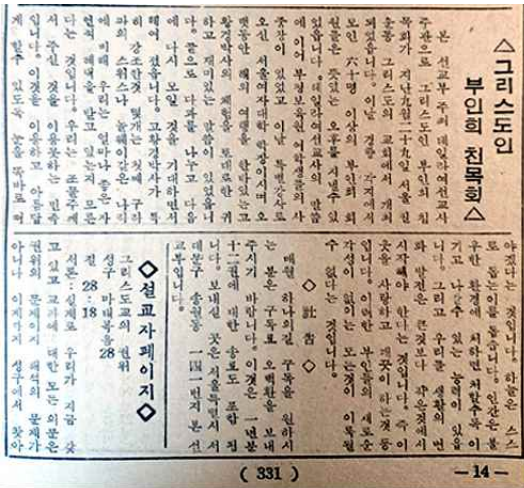 △그리스도인
부인회 친목회△
본 선교부 주최 데일라여선교사
주관으로 그리스도인 부인의 친
목회가 지난九월二十九일 서울 원
효동 그리스도의 교회에서 개최
되었읍니다. 이날 경향 각지에서
모인 六十명 이상의 부인회 회
원들은 뜻있는 오후를 지낼수 있
었읍니다. 데일라여선교사의 만찬
에 이어 부평보육원 여학생들의 사
중창이 있었고 이날 특별강사로
오신 서울여자대학 학장이시며 오
랫동안 해외 여행을 한바있는 고
황경박사의 체험을 토대로한 귀
하고 재미있는 말씀이 있었읍니
다. 끝으로 다과를 나누고 다음
에 다시 모일 것을 기대하면서
헤여 졌읍니다. 고황경박사가 특
히 강조한것 몇개는 첫째 구라
파의 스위스나 놀웨이같은 나라
에 비해 우리는 얼마나 좋은 자
연의 혜택을 받고 있는지 모른
다는 것입니다. 우리는 조물주께
서 주신 것을 이용못하는 민족
입니다. 이것을 이용하고 아름답
게 할수 있도록 눈을 똑바로 떠
야겠다는 것입니다. 하늘은 스스
로 돕는이를 돕습니다. 인간은 불
우한 환경에 처하면 처할수록 이
기고 나갈수 있는 능력이 있읍
니다. 그리고 우리들 생활의 변
화 발전은 큰것보다 작은것에서
시작해야 한다는 것입니다. 즉 이
웃을 사랑하고 깨끗이 하는것 등
입니다. 이러한 부인들의 새로운
각성이 없이는 모든것이 이룩될
수 없다는 것입니다.
◇ 社告 ◇
매월 하나의길 구독을 원하시
는 분은 구독료 오백환을 보내
주시기 바랍니다. 이것은 一년분
十二권에 대한 송료도 포함 된
니다. 보내실 곳은 서울특별시 서
대문구 송월동 一四一번지 본 선
교부입니다.
◇설교자페이지◇
그리스도교의 권위
성구 마태복음 28
절 28:18
서론: 실제로 우리가 지금 갖
고 있고 교파에 대한 모든 의문은
권위의 문제이지 해석의 문제가
아니다 이제까지 성구에서 찾아
( 331 )
— 14 —